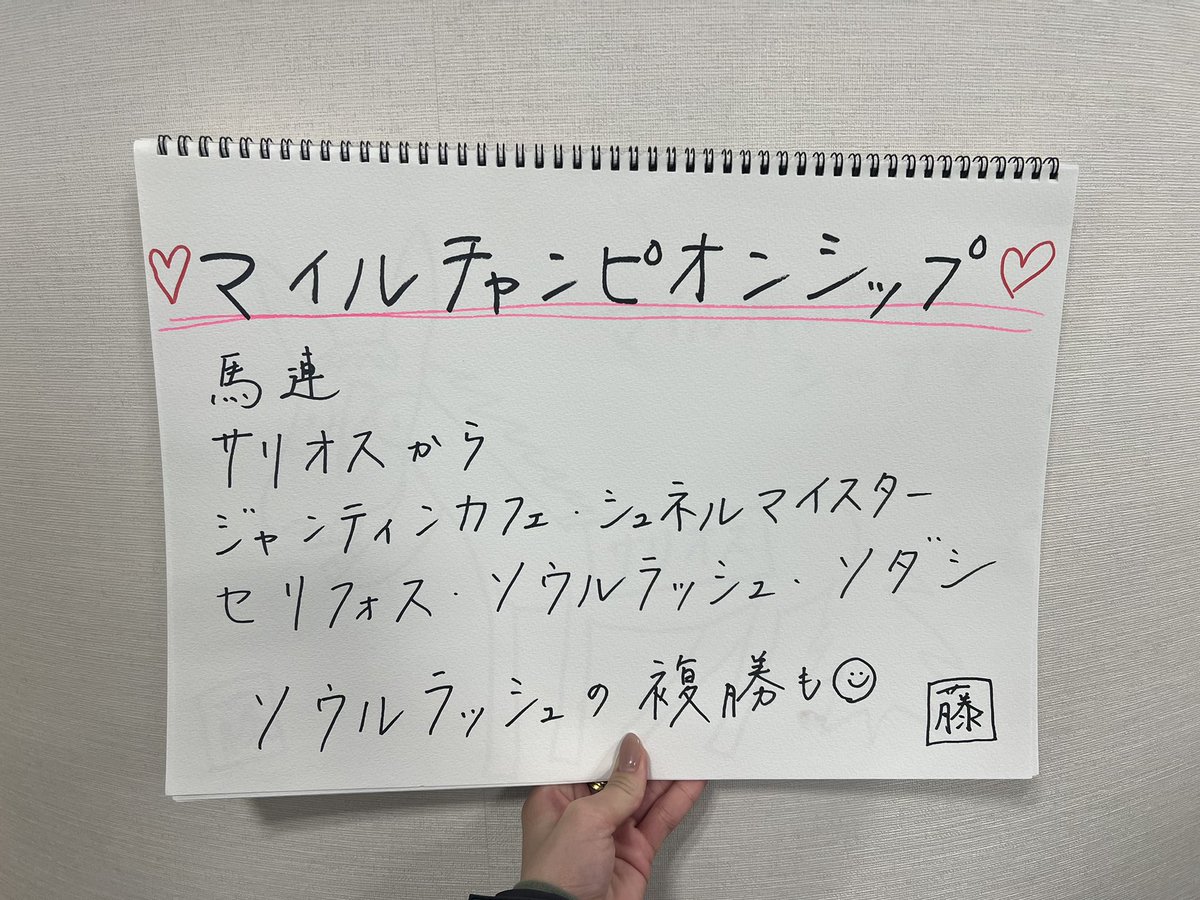 ♡マイルチャンピオンシップ♡
馬連
サリオスから
ジャンティンカフェ・シュネルマイスター
セリフォス・ソウルラッシュ・ソダシ
ソウルラッシュの複勝も☺
藤